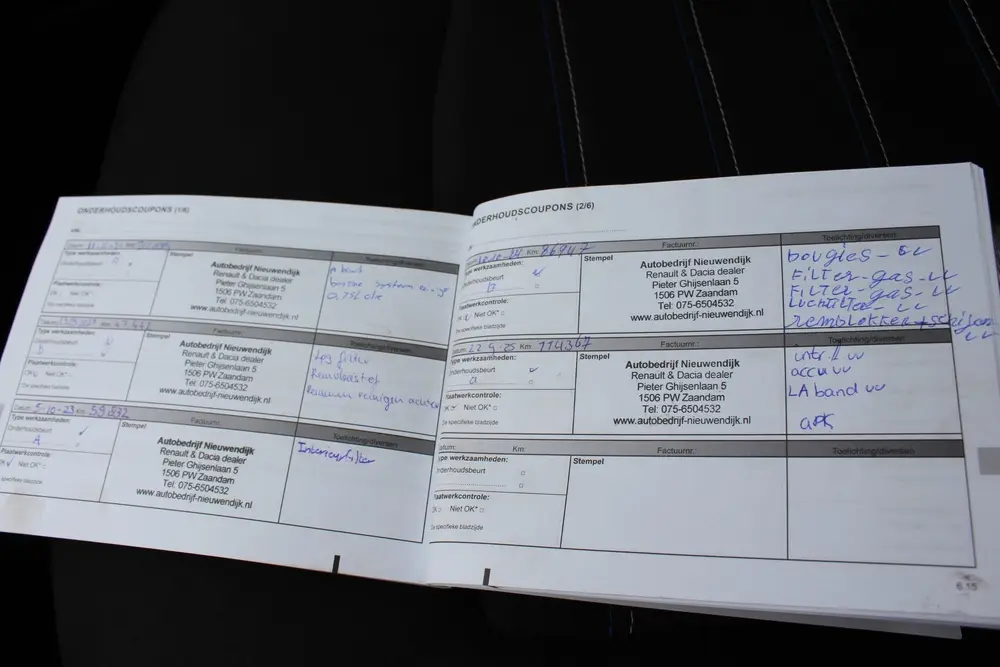 ONDERHOUDSCOUPONS (1/6)
Datum: Km:
Factuurnr.:
Type werkzaamheden:
Onderhoudsbeurt
Plaatwerkcontrole:
OK Niet OK*
Zie specifieke bladzijde
Stempel
Autobedrijf Nieuwendijk
Renault & Dacia dealer
Pieter Ghijsenlaan 5
1506 PW Zaandam
Tel. 075-6504532
www.autobedrijf-nieuwendijk.nl
Toelichting/diversen
0,75l olie
Factuurnr.:
Type werkzaamheden:
Onderhoudsbeurt
Plaatwerkcontrole:
OK Niet OK*
Zie specifieke bladzijde
Stempel
Autobedrijf Nieuwendijk
Renault & Dacia dealer
Pieter Ghijsenlaan 5
1506 PW Zaandam
Tel: 075-6504532
www.autobedrijf-nieuwendijk.nl
Toelichting/diversen
Lpg filter
Remvloeistof
Remmen reinigen achter
Datum: 5-10-23 Km: 59832
Factuurnr.:
Type werkzaamheden:
Onderhoudsbeurt
A
Plaatwerkcontrole:
OK Niet OK*
Zie specifieke bladzijde
Stempel
Autobedrijf Nieuwendijk
Renault & Dacia dealer
Pieter Ghijsenlaan 5
1506 PW Zaandam
Tel: 075-6504532
www.autobedrijf-nieuwendijk.nl
Toelichting/diversen
Interieurfilter
ONDERHOUDSCOUPONS (2/6)
Km: 86947
Factuurnr.:
Type werkzaamheden:
Onderhoudsbeurt
B
Plaatwerkcontrole:
OK Niet OK*
Zie specifieke bladzijde
Stempel
Autobedrijf Nieuwendijk
Renault & Dacia dealer
Pieter Ghijsenlaan 5
1506 PW Zaandam
Tel: 075-6504532
www.autobedrijf-nieuwendijk.nl
Toelichting/diversen
bougies - vv
Filter-gas-vv
Filter-gas-vv
Luchtfilter-vv
remblokken + schijven
vv
Datum: 22-9-25 Km: 114367
Factuurnr.:
Type werkzaamheden:
Onderhoudsbeurt
a
Plaatwerkcontrole:
OK Niet OK*
Zie specifieke bladzijde
Stempel
Autobedrijf Nieuwendijk
Renault & Dacia dealer
Pieter Ghijsenlaan 5
1506 PW Zaandam
Tel: 075-6504532
www.autobedrijf-nieuwendijk.nl
Toelichting/diversen
intr.fl vv
accu vv
LA band vv
apk
Datum: Km:
Factuurnr.:
Type werkzaamheden:
Onderhoudsbeurt
Plaatwerkcontrole:
OK Niet OK*
Zie specifieke bladzijde
Stempel
Toelichting/diversen
6.15